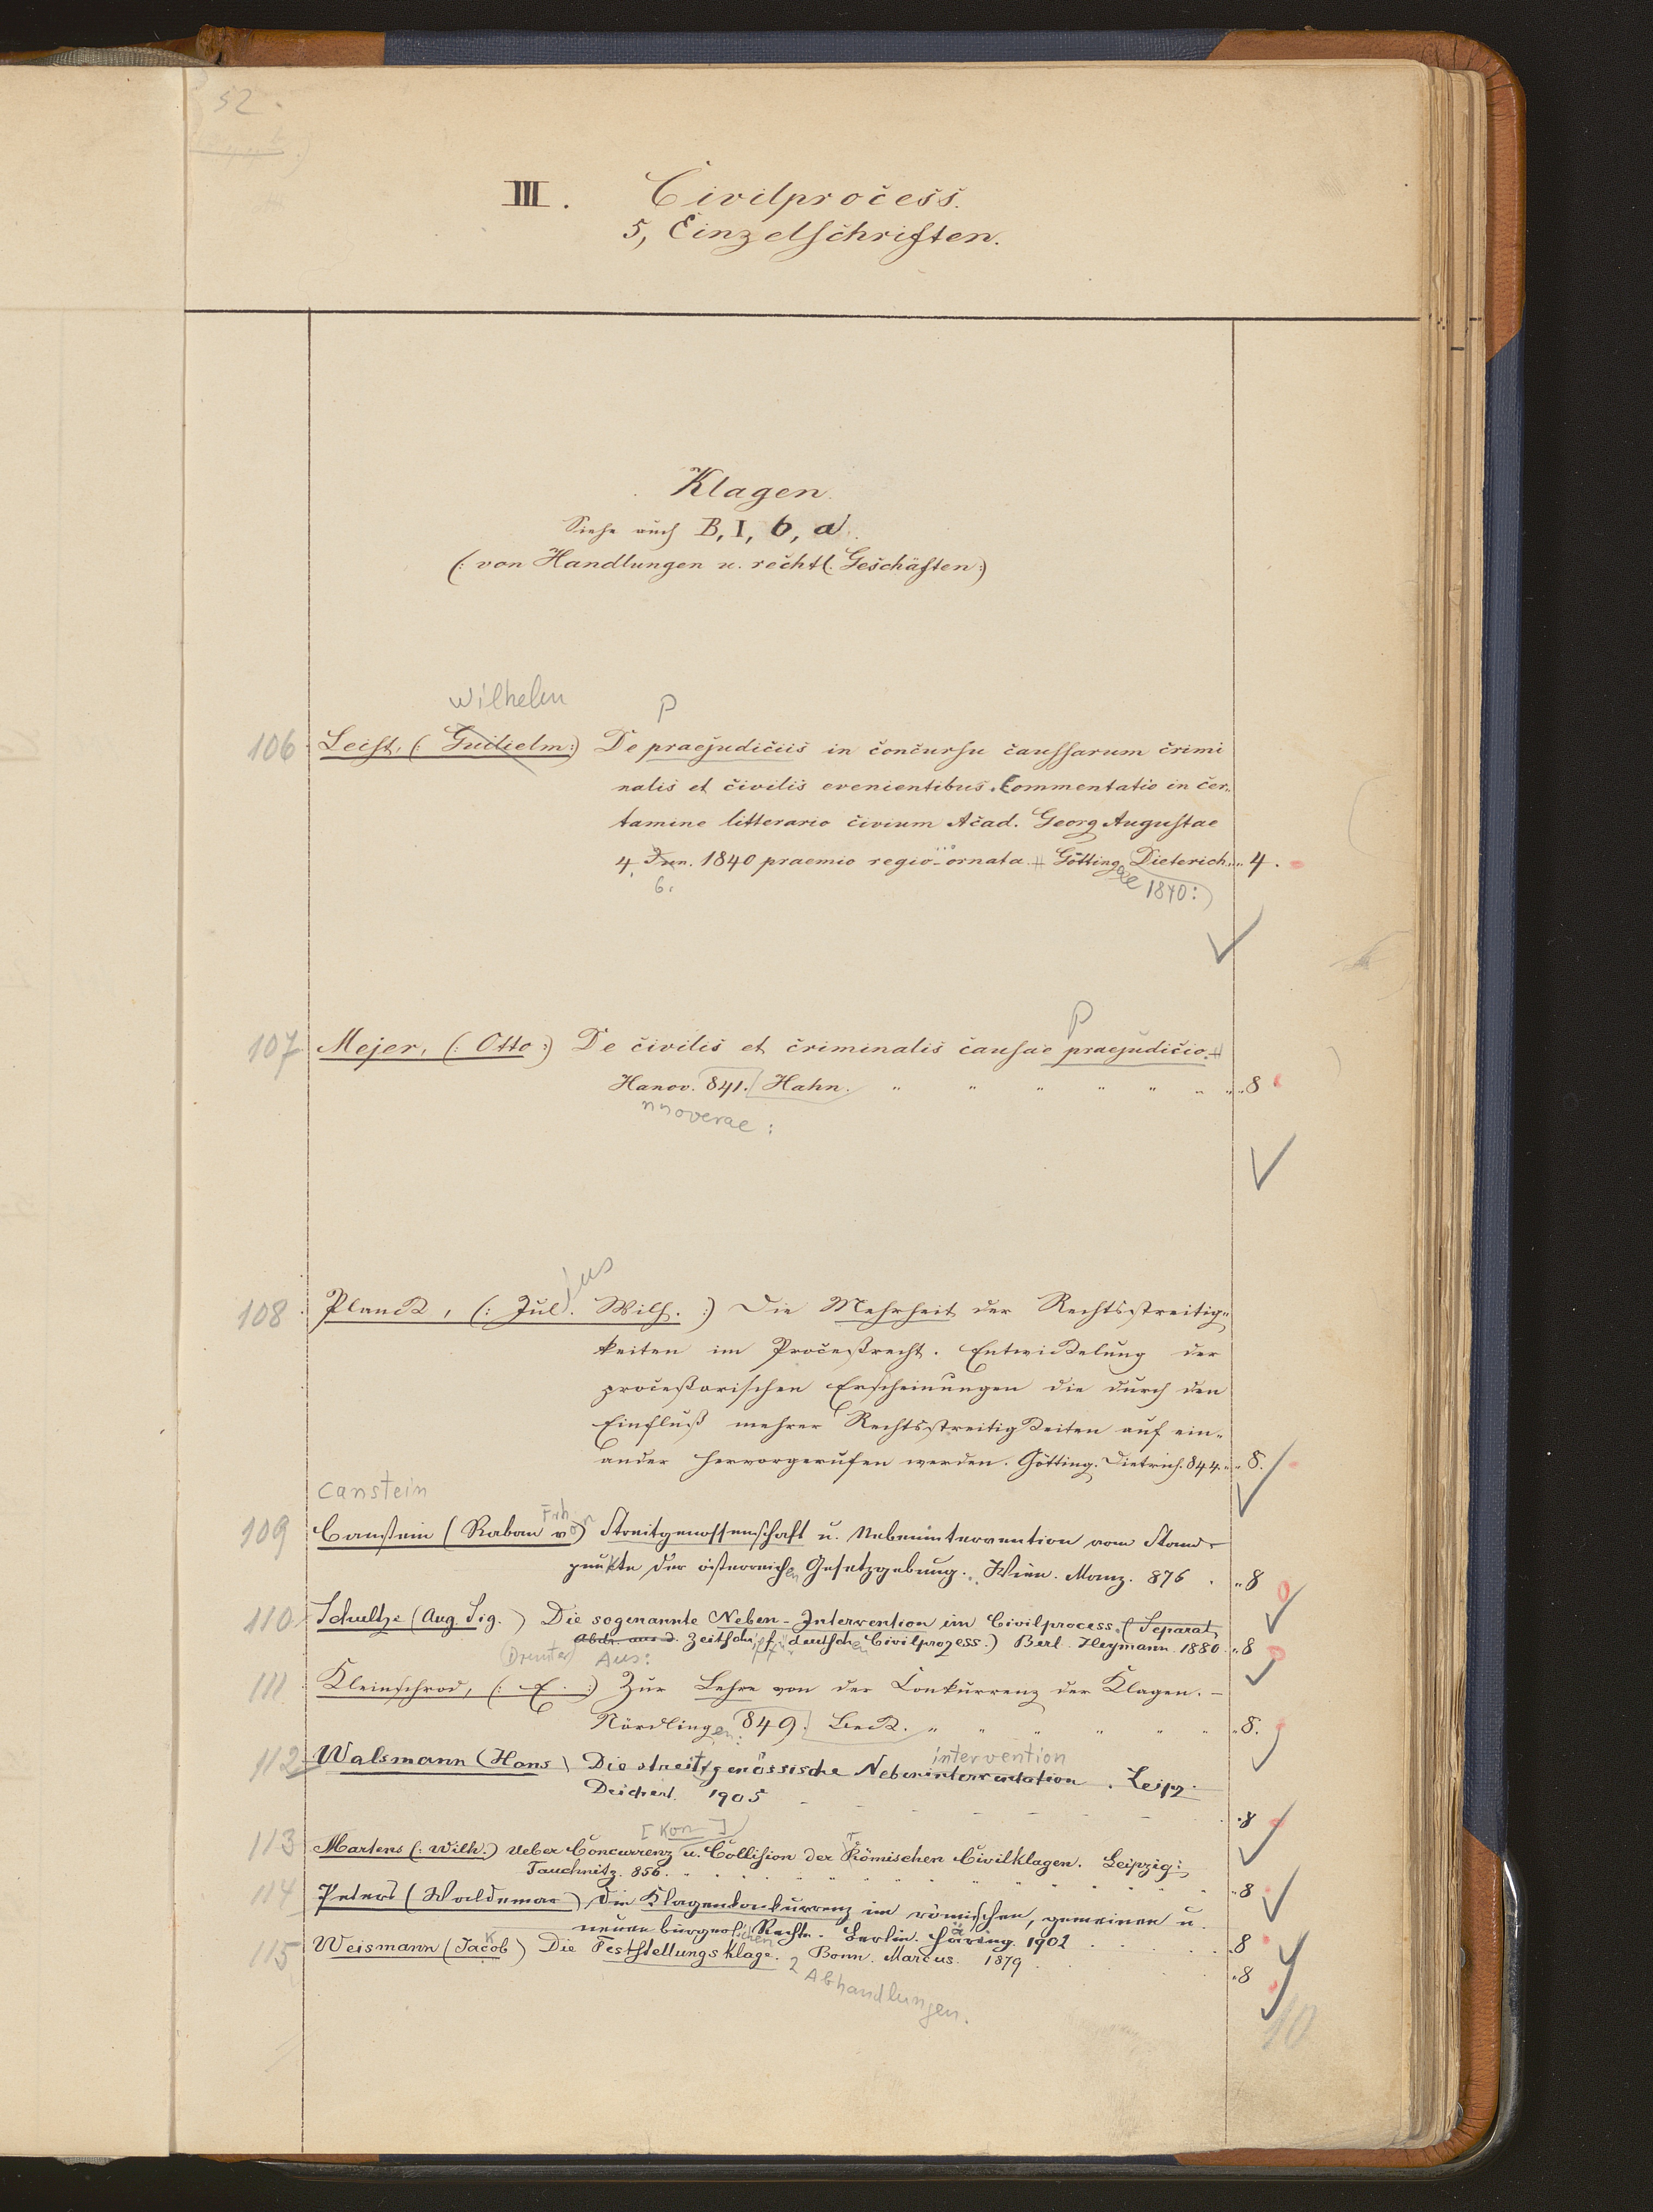 52.
III. Civilprocess.
5, Einzelschriften.
Klagen.
Siehe auch B, I, b, a.
(: von Handlungen u. rechtl. Geschäften :)
Wilhelm P
106 Leist, (: Guilielm :) De praejudiciis in concursu caussarum crimi
nalis et civilis evenientibus. Commentatio in cer„
tamine litterario civium Acad. Georg Augustae
4. Jun. 1840 praemio regio ornata. Götting Dieterich. „ 4.
6. ae 1840:
P
107 Mejer, (: Otto :) De civilis et criminalis causae praejudicio.
Hanov. 841. Hahn. „ „ „ „ „ „ „ 8
nnoverae :
ius
108 Planck, (: Jul. Wilh. :) Die Mehrheit der Rechtsstreitig„
keiten im Proceßrecht. Entwickelung der
proceßorischen Erscheinungen die durch den
Einfluß mehrer Rechtsstreitigkeiten auf ein„
ander hervorgerufen werden. Götting. Dietrich. 844. „ 8.
Canstein
Frh
109 Canstein (Raban von) Streitgenossenschaft u. Nebenintervention vom Stand-
punkte der österreichen Gesetzgebung. Wien. Manz. 876 . „ 8
110 Schultze (Aug. Sig.) Die sogenannte Neben-Intervention im Civilprocess. (Separat
Abdr. aus d. Zeitschrift f. deutschen Civilprozess.) Berl. Heymann 1880. „ 8
Aus:
111. Kleinschrod, (: E. :) Zur Lehre von der Conkurrenz der Klagen. –
Nördlingen: 849. Beck. „ „ „ „ „ „ „ 8.
intervention
112 Walsmann (Hans) Die streitgenössische Nebenintervention. Leipz.
Deichert. 1905 - - - - - - - . 8
[Kon]
113 Martens (: Wilh.) Ueber Concurrenz u. Collision der Römischen Civilklagen. Leipzig:
Tauchnitz. 856. „ „ „ „ „ „ „ 8
114 Peters (Waldemar) Die Klagenkonkurrenz im römischen, gemeinen u.
neuen bürgerlichen Rechte. Berlin. Häring. 1902 . . . . . „ 8
k
115 Weismann (Jacob) Die Feststellungsklage. Bonn. Marcus. 1879 . . . „ 8
2 Abhandlungen.
10